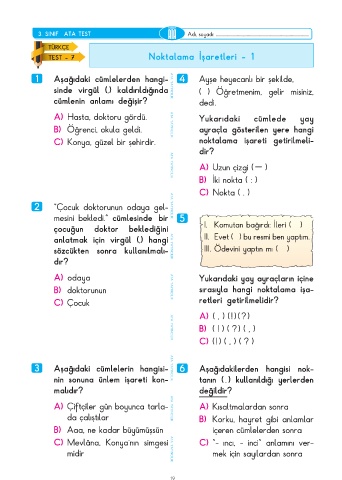 3. SINIF ATA TEST
Adı, soyadı
TÜRKÇE
TEST - 7
Noktalama İşaretleri - 1
1 Aşağıdaki cümlelerden hangi-
sinde virgül (,) kaldırıldığında
cümlenin anlamı değişir?
A) Hasta, doktoru gördü.
B) Öğrenci, okula geldi.
C) Konya, güzel bir şehirdir.
2 "Çocuk doktorunun odaya gel-
mesini bekledi." cümlesinde bir
çocuğun doktor beklediğini
anlatmak için virgül (,) hangi
sözcükten sonra kullanılmalı-
dır?
A) odaya
B) doktorunun
C) Çocuk
3 Aşağıdaki cümlelerin hangisi-
nin sonuna ünlem işareti kon-
malıdır?
A) Çiftçiler gün boyunca tarla-
da çalıştılar
B) Aaa, ne kadar büyümüşsün
C) Mevlâna, Konya'nın simgesi
midir
4 Ayşe heyecanlı bir şekilde,
( ) Öğretmenim, gelir misiniz,
dedi.
Yukarıdaki cümlede yay
ayraçla gösterilen yere hangi
noktalama işareti getirilmeli-
dir?
A) Uzun çizgi (—)
B) İki nokta ( : )
C) Nokta ( . )
5
I. Komutan bağırdı: İleri ( )
II. Evet ( ) bu resmi ben yaptım.
III. Ödevini yaptın mı ( )
Yukarıdaki yay ayraçların içine
sırasıyla hangi noktalama işa-
retleri getirilmelidir?
A) ( , ) (!) (?)
B) ( ! ) ( ?) ( , )
C) (!) ( , ) ( ? )
6 Aşağıdakilerden hangisi nok-
tanın (.) kullanıldığı yerlerden
değildir?
A) Kısaltmalardan sonra
B) Korku, hayret gibi anlamlar
içeren cümlelerden sonra
C) "- ıncı, - inci" anlamını ver-
mek için sayılardan sonra